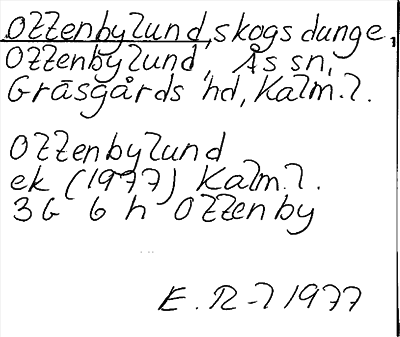 Ottenbylund, skogsdunge,
Ottenbylund, Ås sn,
Gräsgårds hd, Kalm. l.
Ottenbylund
ek (1977) Kalm. l.
3G 6 h Ottenby
E. R-l 1977